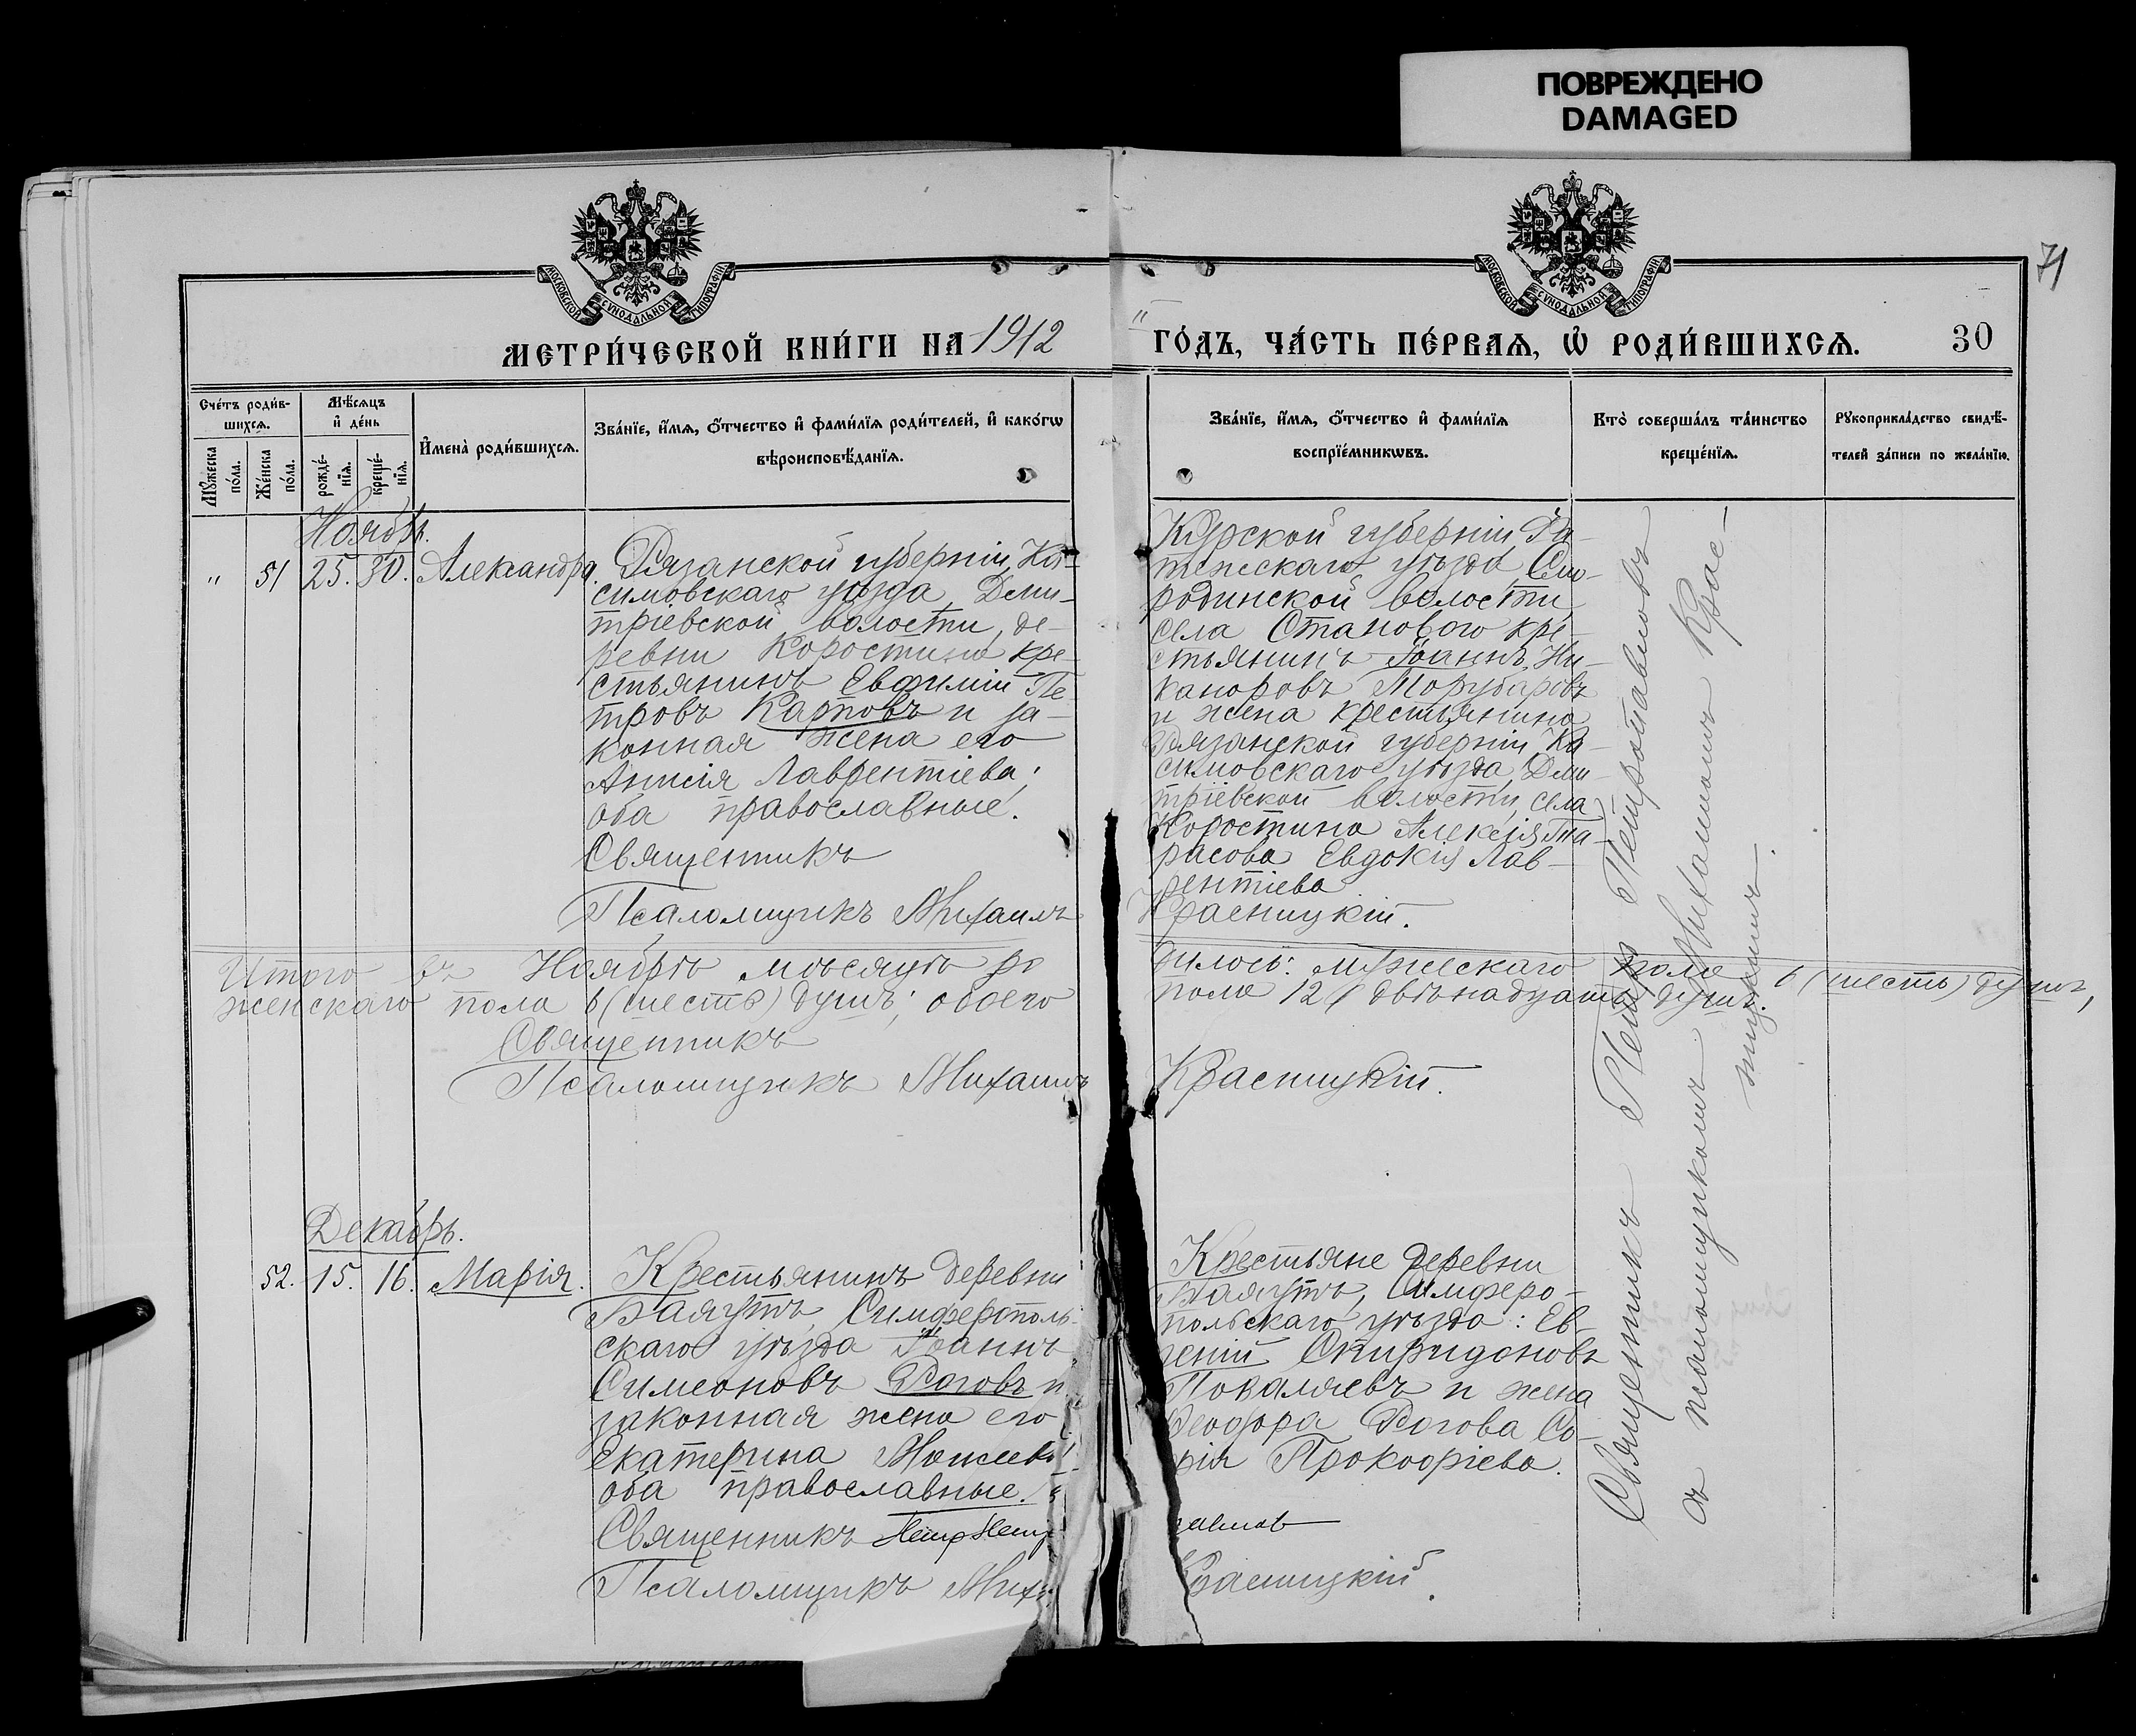 ПОВРЕЖДЕНО
DAMAGED
МОСКОВСКОЙ СѴНОДАЛЬНОЙ ТИПОГРАФІИ
МОСКОВСКОЙ СѴНОДАЛЬНОЙ ТИПОГРАФІИ
71
МЕТРИ́ЧЕСКОЙ КНИ́ГИ НА 1912
ГО́ДЪ, ЧА́СТЬ ПЕ́РВАѦ, Ѡ҆ РОДИ́ВШИХСѦ.
30
Сче́тъ роди́в-
шихсѧ.
Мꙋ́жеска по́ла.
Же́нска по́ла.
Мѣ́сѧцъ
и҆ де́нь
рожде́-
нїѧ.
креще́-
нїѧ.
И҆мена̀ роди́вшихсѧ.
Зва́нїе, и҆́мѧ, ѻ҆́тчество и҆ фами́лїѧ роди́телей, и҆ како́гѡ
вѣроисповѣ́данїѧ.
Зва́нїе, и҆́мѧ, ѻ҆́тчество и҆ фами́лїѧ
воспрїе́мникѡвъ.
Кто̀ соверша́лъ та́инство
креще́нїѧ.
Рꙋкоприкла́дство свидѣ́-
телей за́писи по жела́нїю.
Ноябрь.
" 51 25. 30. Александра.
Рязанской губерніи, Ка-
симовскаго уѣзда Дми-
тріевской волости, де-
ревни Коростино кре-
стьянинъ Евфимій Пе-
тровъ Карповъ и за-
конная жена его
Анисія Лаврентіева;
оба православные.
Священникъ
Псаломщикъ Михаилъ
Курской губерніи Фа-
тежскаго уѣзда Смо-
родинской волости
села Станового кре-
стьянинъ Іоаннъ Ни-
каноровъ
и жена крестьянина
Рязанской губерніи Ка-
симовскаго уѣзда, Дми-
тріевской волости, села
Коростино Алексія Та-
расова Евдокія Лав-
рентіева
Красницкій.
Священникъ Петръ Петропавловъ
съ псаломщикомъ Михаиломъ Крас-
ницкимъ.
Итого въ Ноябрѣ мѣсяцѣ ро
дилось: мужескаго пола 6 (шесть) душъ,
женскаго пола 6 (шесть) душъ; обоего
пола 12 (двѣнадцать) душъ.
Священникъ
Псаломщикъ Михаилъ
Красницкій.
Декабрь.
52. 15. 16. Марія.
Крестьянинъ деревни
Баяутъ, Симферополь-
скаго уѣзда Іоаннъ
Симеоновъ Роговъ и
законная жена его
Екатерина
оба православные.
Священникъ Петръ
Псаломщикъ Мих
Крестьяне деревни
Баяутъ, Симферо-
польскаго уѣзда: Ев-
геній Спиридоновъ
и жена
Феодора Рогова Со-
фія Прокофіева.
павлов
Красницкій.